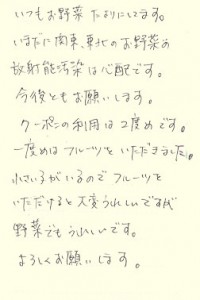 いつもお野菜たよりにしてます。
いまだに関東、東北のお野菜の
放射能汚染は心配です。
今後ともお願いします。
クーポンの利用は2度めです。
一度めはフルーツをいただきました。
小さい子がいるのでフルーツを
いただけると大変うれしいですが
野菜でもうれしいです。
よろしくお願いします。